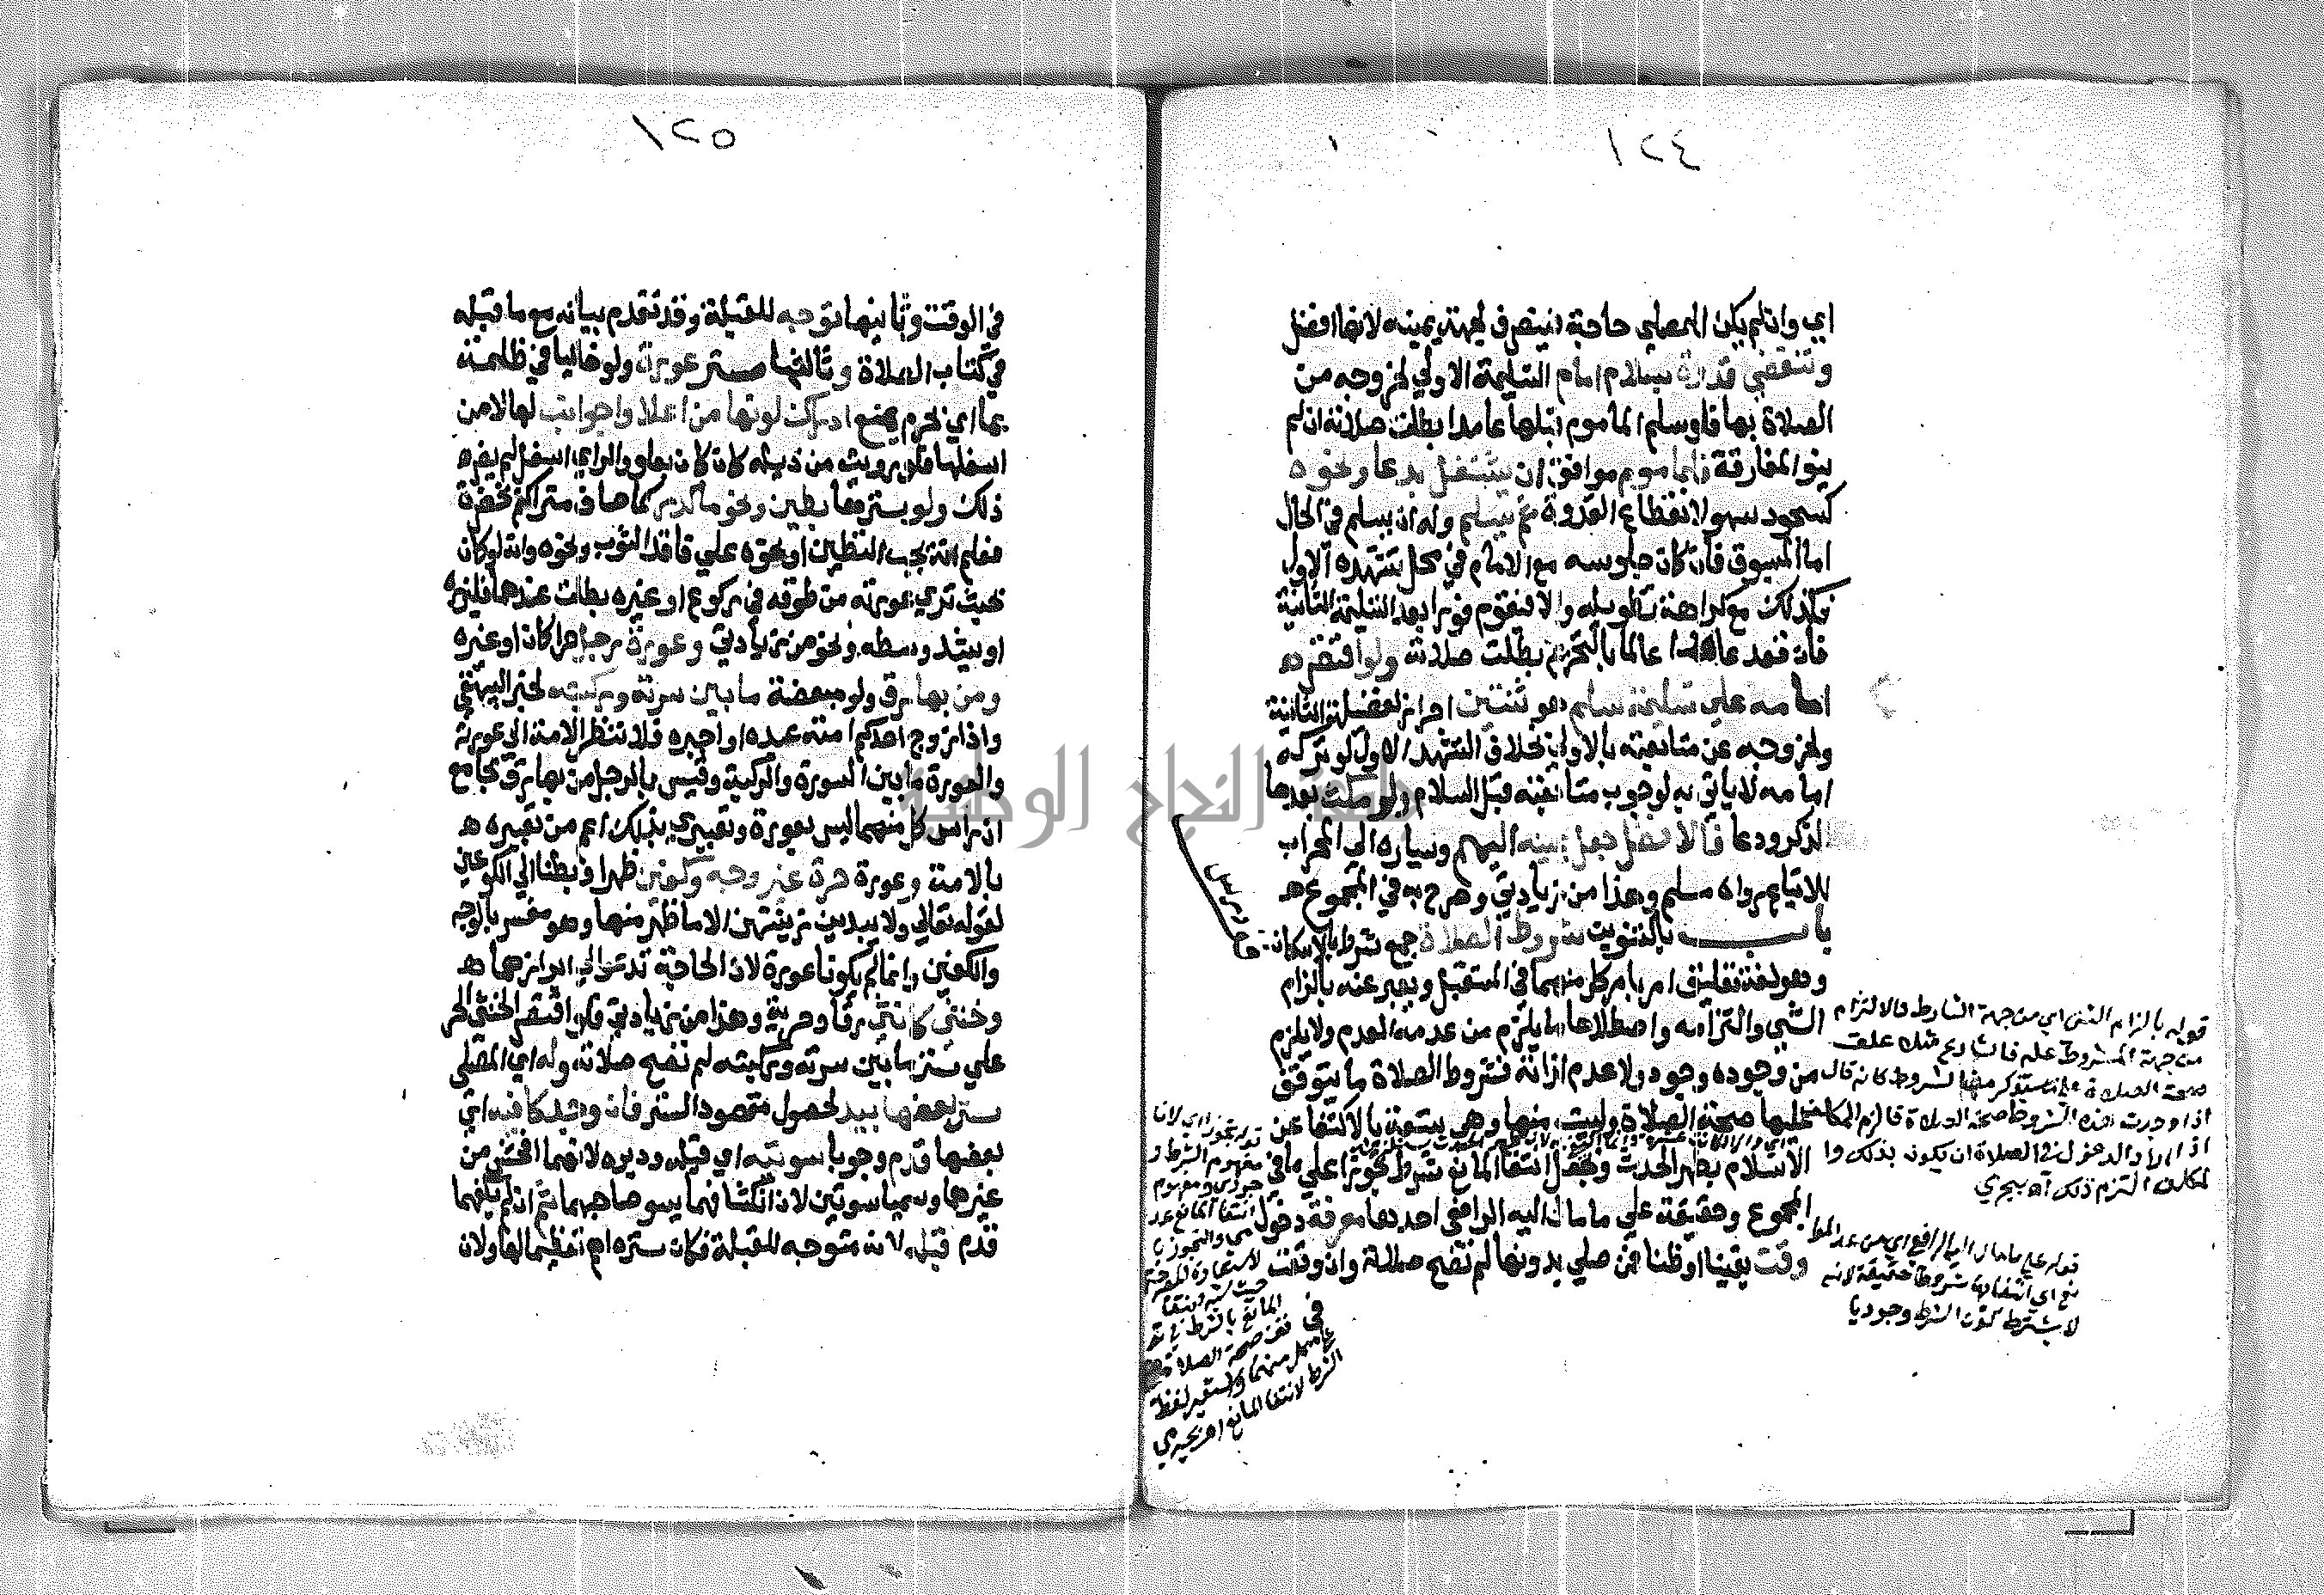 ١٢٤
اي وان لم يكن للمصلي حاجة فينصرف لجهة يمينه لانها افضل
وتنقضي قدوة بسلام امام التسليمة الاولي لخروجه من
الصلاة بها فلو سلم الماموم قبلها عامدا بطلت صلاته ان لم
ينو المفارقة فلماموم موافق ان يشتغل بدعا ونحوه
كسجود سهو لانقطاع القدوة ثم يسلم وله ان يسلم في الحال
اما المسبوق فان كان جلوسه مع الامام في محل تشهده الاول
فكذلك مع كراهة تطويله والا فيقوم فورا بعد التسليمة الثانية
فان قعد عامدا عالما بالتحريم بطلت صلاته ولو اقتصر
امامه علي تسليمة سلم هو ثنتين احراز لفضيلة الثانية
ولخروجه عن متابعته بالاولي بخلاف التشهد الاول لو تركه
امامه لا ياتي به لوجوب متابعته قبل السلام ولو مكث بعدها
لذكر ودعا فالافضل جعل يمينه اليهم ويساره الي المحراب
للاتباع رواه مسلم وهذا من زيادتي وصرح به في المجموع
باب بالتنوين شروط الصلاة جمع شرط بالاسكان
وهو لغة تعليق امر بامر كل منهما في المستقبل ويعبر عنه بالزام
الشي والتزامه واصطلاحا ما يلزم من عدمه العدم ولا يلزم
من وجوده وجود ولا عدم لذاته فشروط الصلاة ما يتوقف
عليها صحة الصلاة وليست منها وهي تسعة بالاكتفا عن
الاسلام بطهر الحدث وجعل انتفا المانع شرط تجوزا علي ما في
المجموع وحقيقة علي ما مال اليه الرافعي احدها معرفة دخول
وقت يقينا او ظنا فمن صلي بدونها لم تصح صلاته وان وقعت
في
درس
قوله بالزام الشي اي من جهة الشارط والالتزام
من جهة المشروط عليه فالشارع مثلا علق
صحة الصلاة علي ما سنذكر من الشروط كانه قال
اذا وجدت هذه الشروط صحة الصلاة فالزم المكلف
اذا اراد الدخول في الصلاة ان يكون بذلك وا
لمكلف التزم ذلك اه بجيرمي
قوله علي ما مال اليه الرافعي اي من عد الموا
نع اي انتفائها شروطا حقيقة لانه
لا يشترط كون الشرط وجوديا
قوله تجوزا اي لان
مفهوم الشرط و
جودي ومفهوم
انتفا المانع عد
مي والتجوز با
لاستعارة المصرحة
حيث شبه انتفا
المانع بالشرط في تو
قف صحة الصلاة
علي كل منهما واستعير لفظ
الشرط لانتفا المانع اه بجيرمي
١٢٥
في الوقت وثانيها توجه للقبلة وقد تقدم بيانه مع ما قبله
في كتاب الصلاة وثالثها ستر عورة ولو خاليا في ظلمة
بما اي بجرم يمنع ادراك لونها من اعلا وجوانب لها لا من
اسفلها فلو رويت من ذيله كان كان بعلو والراي اسفل لم يضره
ذلك ولو يستر بطين ونحو ماكدر كماصاف متراكم بخضرة
فعلم انه يجب التطيين او نحوه علي فاقد الثوب ونحوه وانه لو كان
بحيث تري عورته من طوقه في ركوع او غيره بطلت عندهما فليزره
او يشد وسطه ونحو من زيادتي وعورة رجل حرا كان او غيره
ومن بها رق ولو مبعضة ما بين سرته وركبته لخبر البيهقي
واذا زوج احدكم امته عبده او اجيره فلا تنظر الامة الي عورته
والعورة ما بين السرة والركبة وقيس بالرجل من بها رق بجامع
ان راس كل منهما ليس بعورة وتعبيري بذلك اعم من تعبيره
بالامة وعورة حرة غير وجه وكفين ظهرا وبطنا الي الكوعين
لقوله تعالي ولا يبدين زينتهن الا ما ظهر منها وهو مفسر بالوجه
والكفين وانما لم يكونا عورة لان الحاجة تدعوا الي ابرازهما
وخنثي كانثي رقا وحرية وهذا من زيادتي فان اقتصر الخنثي الحر
علي ستر ما بين سرته وركبته لم تصح صلاته وله اي للمصلي
ستر بعضها بيد لحصول مقصود الستر فان وجد كافيه اي
بعضها قدم وجوبا سوءتيه اي قبله ودبره لانهما افحش من
غيرها وسميا سوتين لان انكشافهما يسو صاحبهما ثم ان لم يكفهما
قدم قبله لانه متوجه للقبلة فكان ستره اهم تعظيما لها ولان
جامعة النجاح الوطنية